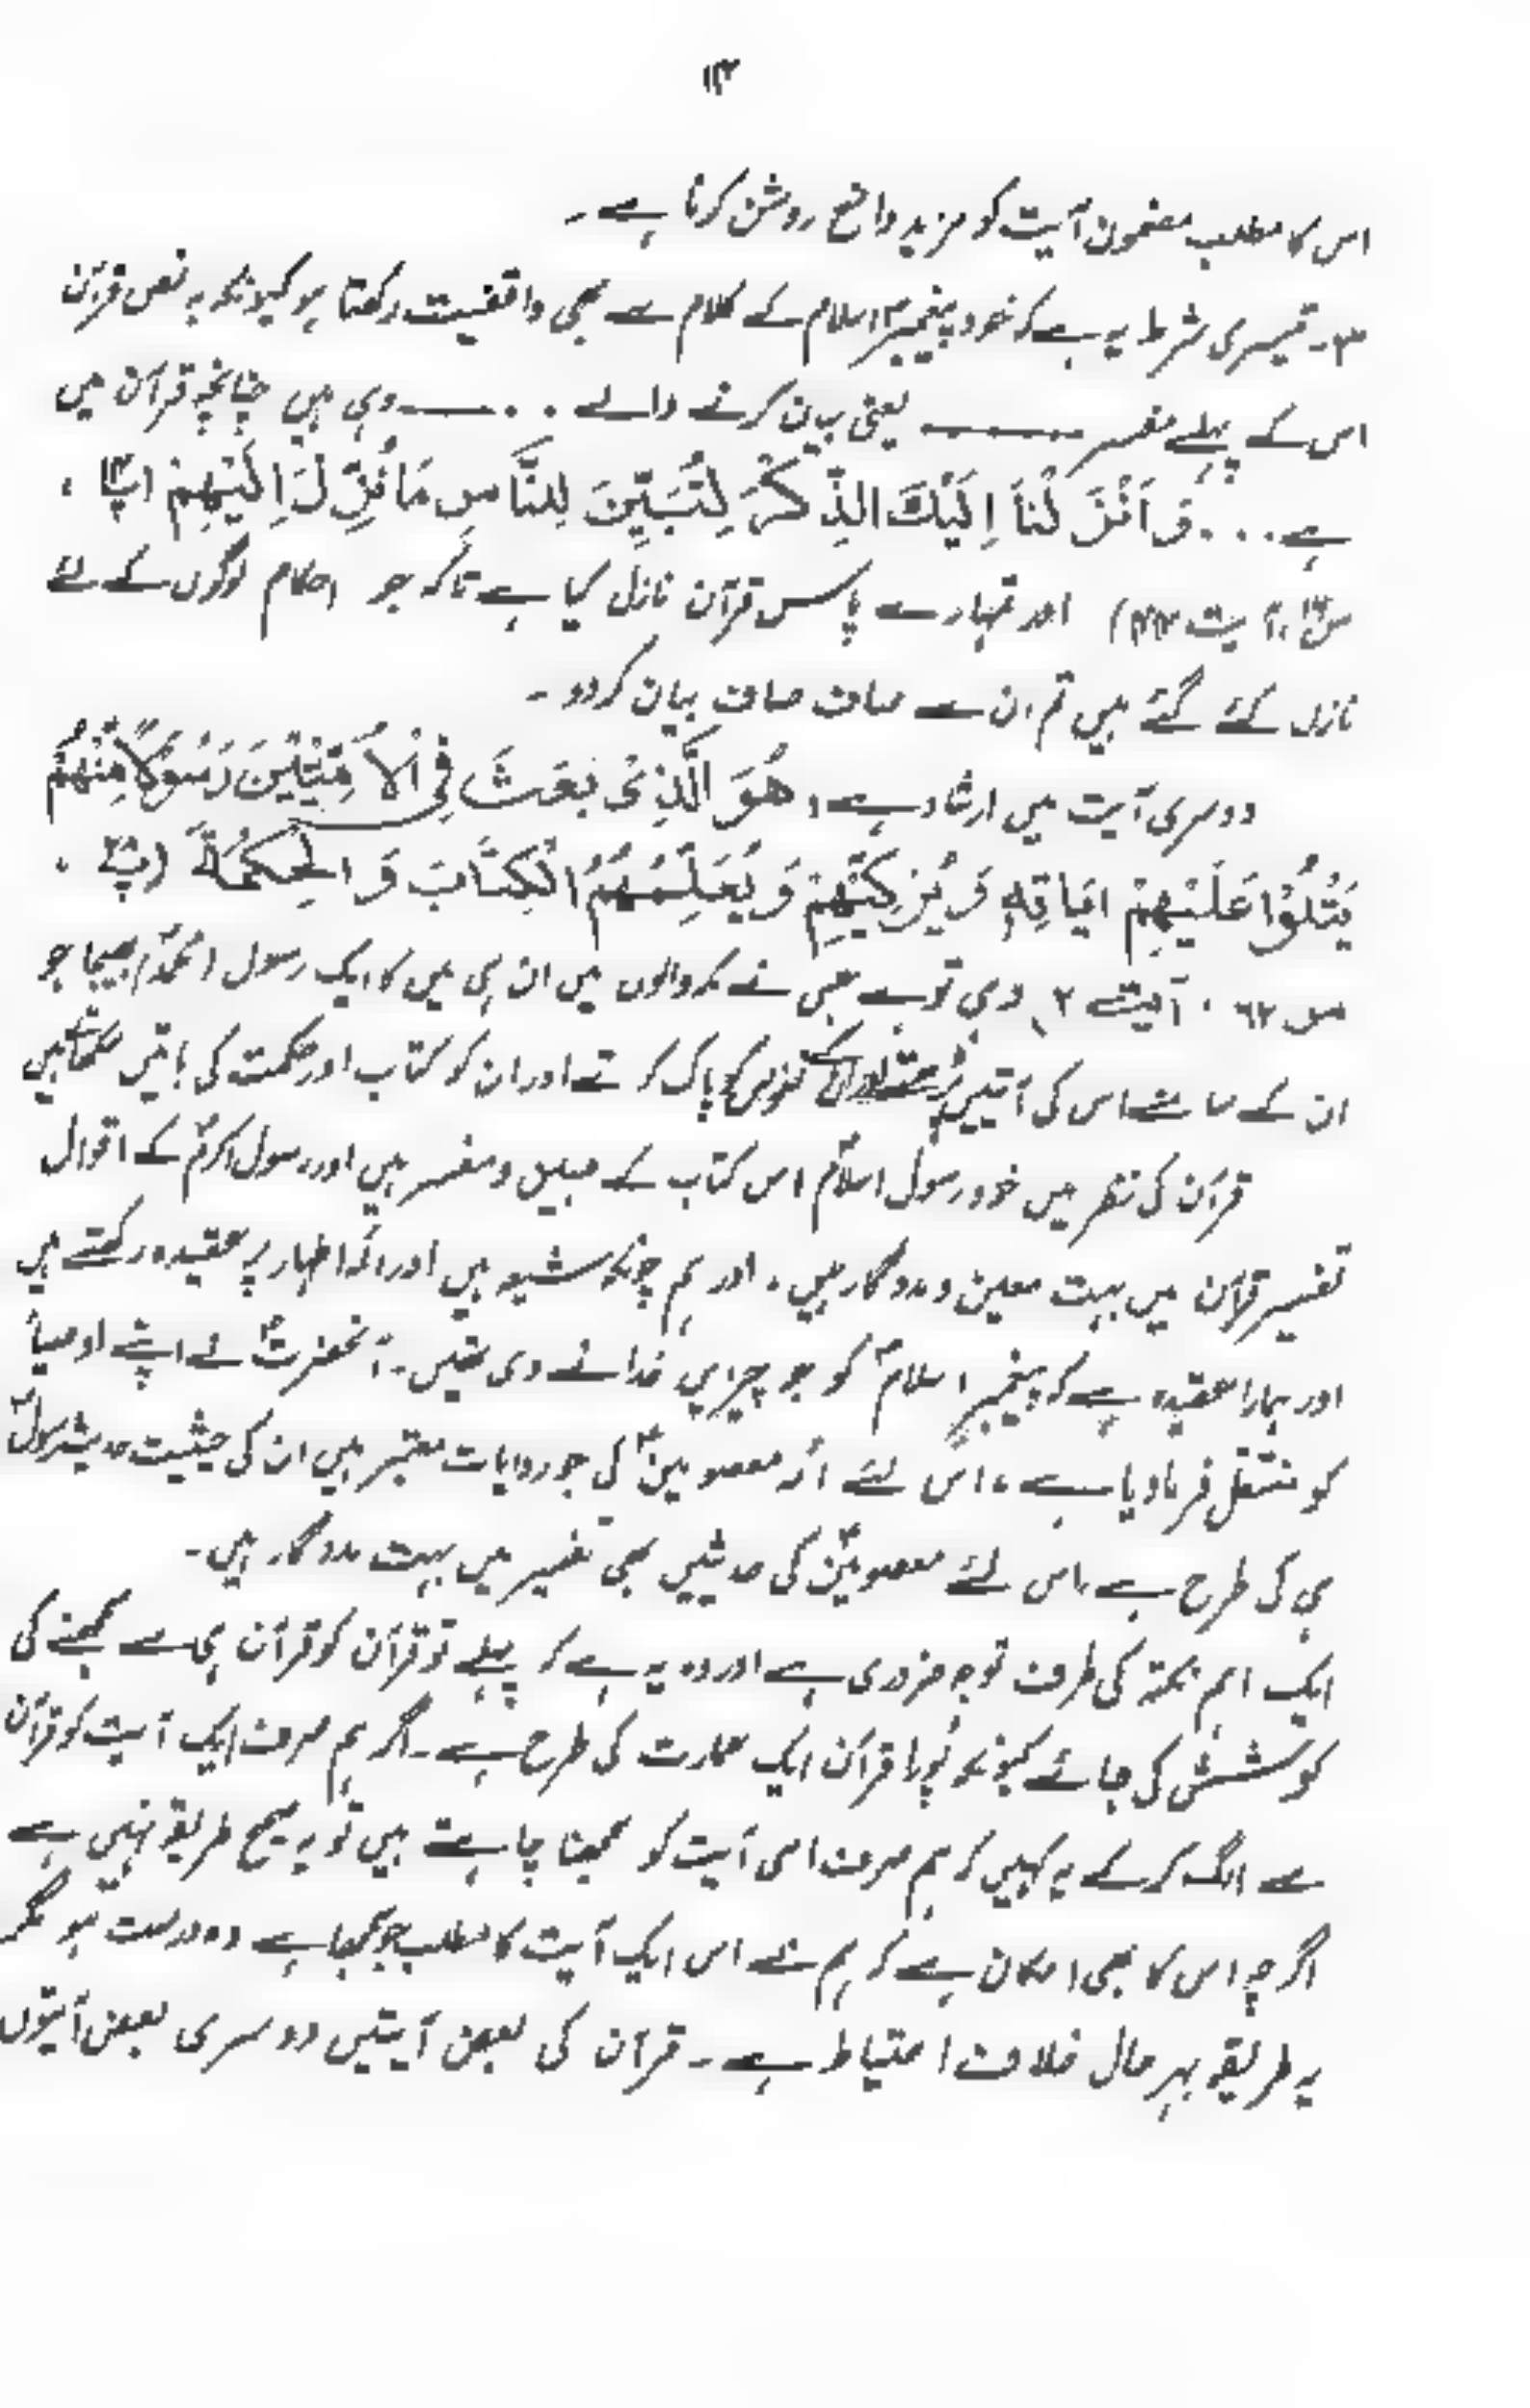 ۱۳
اس کا مطلب مضمون آیت کو مزید واضح روشن کرنا ہے ۔
۳۔ تیسری شرط یہ ہے کہ خود پیغمبرؐ اسلام کے کلام سے بھی واقفیت رکھتا ہو کیونکہ بہ نص قرآن
اس کے پہلے مفسر ـــــــ یعنی بیان کرنے والے ۔ ۔ ـــــ وہی ہیں چنانچہ قرآن میں
ہے ۔ ۔ ۔ وَ اَنْزَلْنَا اِلَيْكَ الذِّكْرَ لِتُبَيِّنَ لِلنَّاسِ مَا نُزِّلَ اِلَيْهِمْ (پ۱۴ ،
س۱۶، آیت ۴۴) اور تمہارے پاس قرآن نازل کیا ہے تاکہ جو احکام لوگوں کے لئے
نازل کئے گئے ہیں تم ان سے صاف صاف بیان کردو ۔
دوسری آیت میں ارشاد ہے ، هُوَ الَّذِیْ بَعَثَ فِی الْاُمِّيّٖنَ رَسُوْلًا مِّنْهُمْ
يَتْلُوْا عَلَيْهِمْ اٰيَاتِهٖ وَ يُزَكِّيْهِمْ وَ يُعَلِّمُهُمُ الْكِتَابَ وَ الْحِكْمَةَ (پ۲۸ ،
س ۶۲ ، آیت ۲) وہی تو ہے جس نے مکہ والوں میں ان ہی میں کا ایک رسول (محمدؐ) بھیجا جو
ان کے سامنے اس کی آیتیں پڑھتے اور ان کے نفوس کو پاک کرتے اور ان کو کتاب اور حکمت کی باتیں سکھاتے ہیں
قرآن کی نظر میں خود رسول اسلامؐ اس کتاب کے مبین و مفسر ہیں اور رسول اکرمؐ کے اقوال
تفسیر قرآن میں بہت معین و مددگار ہیں ، اور ہم چونکہ شیعہ ہیں اور ائمہ اطہار پر عقیدہ رکھتے ہیں
اور ہمارا عقیدہ ہے کہ پیغمبر اسلامؐ کو جو چیزیں خدا نے دی تھیں ۔ آنحضرتؐ نے اپنے اوصیاؑ
کو منتقل فرمادیا ہے ، اس لئے ائمہ معصومینؑ کی جو روایات معتبر ہیں ان کی حیثیت حدیث رسولؐ
ہی کی طرح ہے ، اس لئے معصومینؑ کی حدیثیں بھی تفسیر میں بہت مددگار ہیں ۔
ایک اہم نکتہ کی طرف توجہ ضروری ہے اور وہ یہ ہے کہ پہلے تو قرآن کو قرآن ہی سے سمجھنے کی
کوشش کی جائے کیونکہ پُورا قرآن ایک عمارت کی طرح ہے ۔ اگر ہم صرف ایک آیت کو قرآن
سے الگ کرکے یہ کہیں کہ ہم صرف اسی آیت کو سمجھنا چاہتے ہیں تو یہ صحیح طریقہ نہیں ہے
اگرچہ اس کا بھی امکان ہے کہ ہم نے اس ایک آیت کا مطلب جو سمجھا ہے وہ درست ہو مگر
یہ طریقہ بہر حال خلاف احتیاط ہے ۔ قرآن کی بعض آیتیں دوسری بعض آیتوں